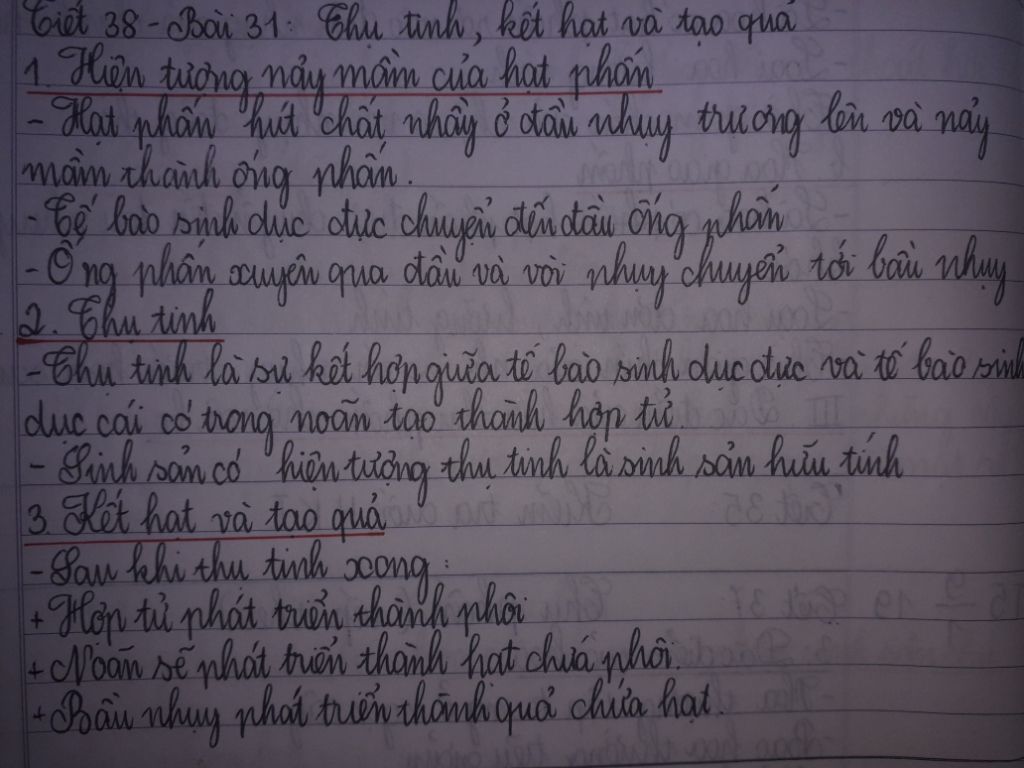 Tiết 38 - Bài 31: Thụ tinh, kết hạt và tạo quả
1. Hiện tượng nảy mầm của hạt phấn
- Hạt phấn hút chất nhầy ở đầu nhụy trương lên và nảy
mầm thành ống phấn.
- Tế bào sinh dục đực chuyển đến đầu ống phấn
- Ống phấn xuyên qua đầu và vòi nhụy chuyển tới bầu nhụy
2. Thụ tinh
- Thụ tinh là sự kết hợp giữa tế bào sinh dục đực và tế bào sinh
dục cái có trong noãn tạo thành hợp tử.
- Sinh sản có hiện tượng thụ tinh là sinh sản hữu tính
3. Kết hạt và tạo quả
- Sau khi thụ tinh xong:
+ Hợp tử phát triển thành phôi
+ Noãn sẽ phát triển thành hạt chứa phôi.
+ Bầu nhụy phát triển thành quả chứa hạt.